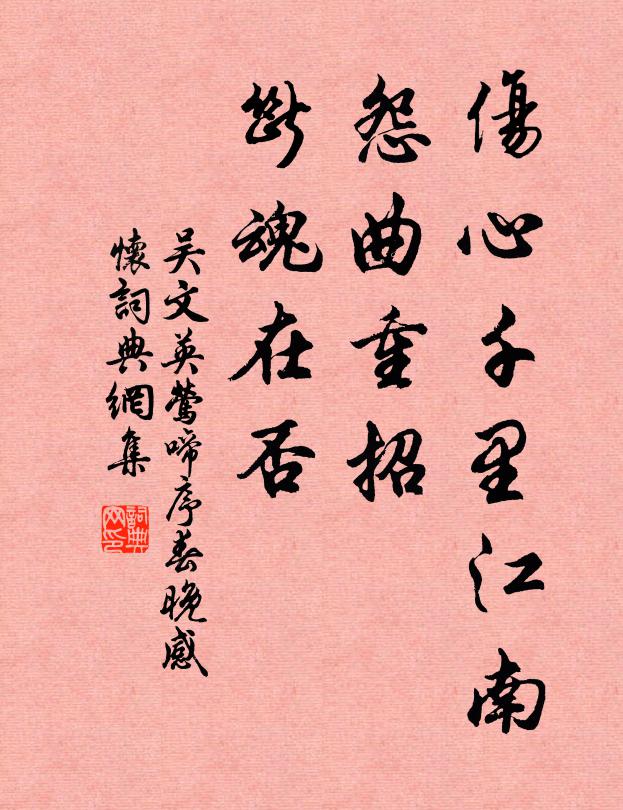 傷心千里江南
怨曲重招
斷魂在否
吴文英鶯啼序春晚感
懷詞典網集
詞典網印